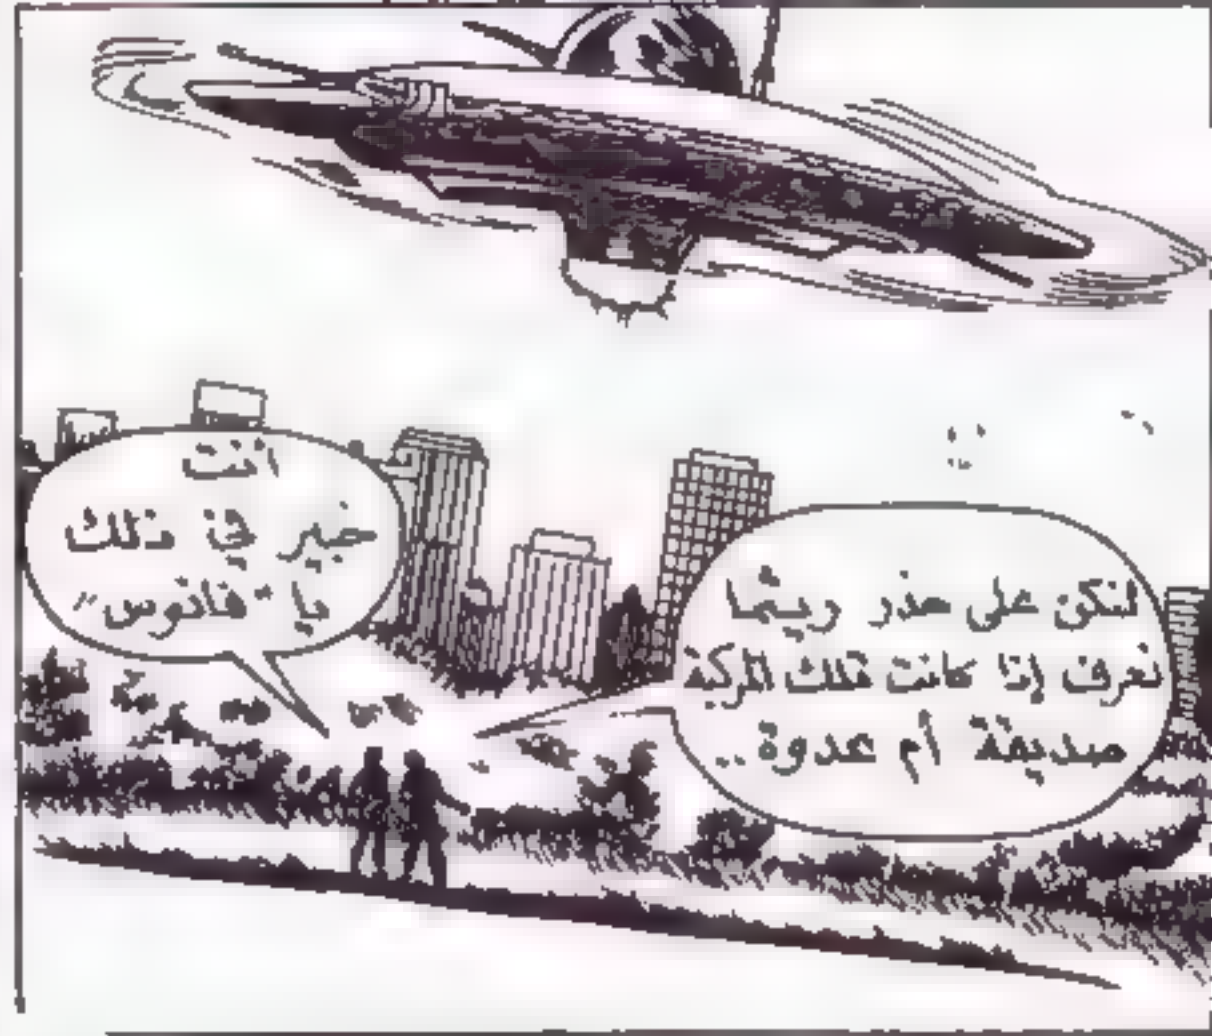 لنكن على حذر ريثما
نعرف إذا كانت تلك المركبة
صديقة أم عدوة..
أنت
خبير في ذلك
يا "فانوس"